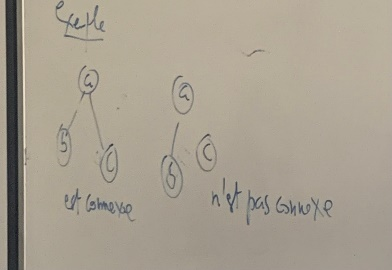 Exemple
a
b
c
est connexe
a
b
c
n'est pas connexe